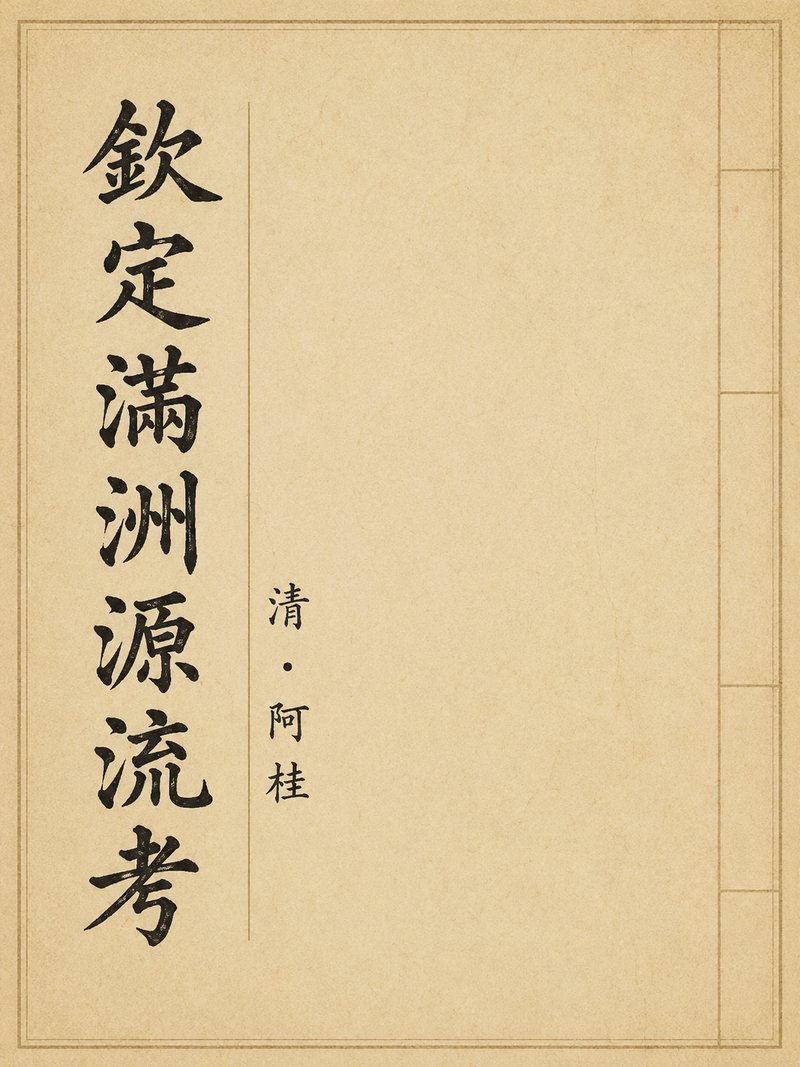 欽定滿洲源流考
清・阿桂